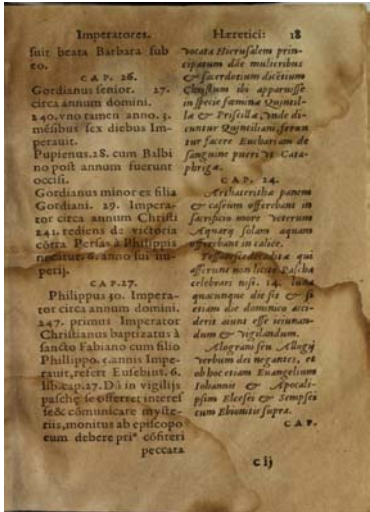 Imperatores.
Hæretici:
18
fuit beata Barbara sub
eo.
CAP. 26.
Gordianus senior. 27.
circa annum domini.
240. vno tamen anno. 3.
mēsibus sex diebus Im-
perauit.
Pupienus. 28. cum Balbi
no post annum fuerunt
occisi.
Gordianus minor ex filia
Gordiani. 29. Impera-
tor circa annum Christi
241. rediens de victoria
cōtra Persas à Philippis
necitur. 6. anno sui im-
perij.
CAP. 27.
Philippus 30. Impera-
tor circa annum domini.
247. primus Imperator
Christianus baptizatus à
sancto Fabiano cum filio
Phillippo. annis Impe-
rauit, refert Eusebius. 6.
lib. cap. 27. Dū in vigilijs
paschę se offerret interes
se & cōmunicare myste-
riis, monitus ab episcopo
eum debere priº cōfiteri
peccata
vocata Hierusalem prin-
cipatum dāt mulieribus
& sacerdotium dicētium
Christum ibi apparuisse
in specie fœminæ Quintil-
læ & Priscillæ, vnde di-
cuntur Quintiliani, ferun
tur facere Euchariam de
sanguine pueri vt Cata-
phrigæ.
CAP. 24.
panem
& caseum offerebant in
sacrificio more veterum
Aquarij solam aquam
offerebant in calice.
qui
asserunt non licere Pascha
celebrari nisi. 14. luna
quacunque die sit & si
etiam die dominico acci-
derit aiunt esse ieiunan-
dum & vigilandum.
Alogiani seu Allogij
verbum dei negantes, et
ob hoc etiam Euangelium
Iohannis & Apocali-
psim Elcesei & Sempsei
cum Ebionitis supra.
CAP.
C ij